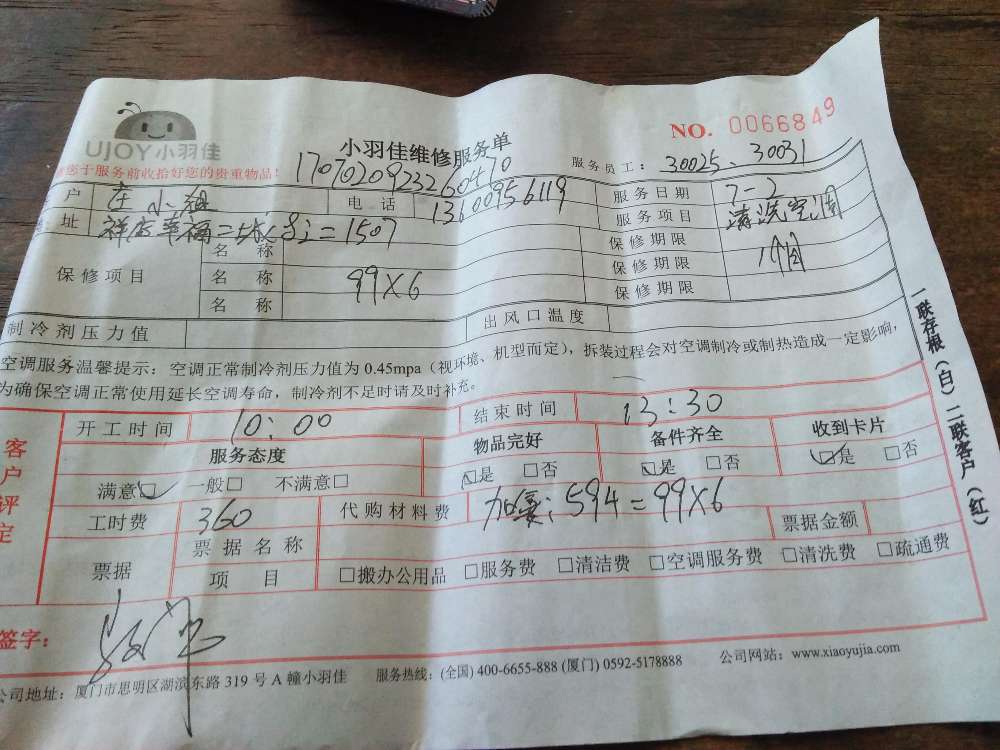 UJOY小羽佳
小羽佳维修服务单
NO. 0066849
您于服务前收拾好您的贵重物品!
17070209232260470
服务员工: 30025、30031
户 庄小姐 电话 13600956119 服务日期 7-2
址 祥店幸福二 = 1507 服务项目 清洗空调
保修项目 名称 保修期限
名称 99X6 保修期限 1个月
名称 保修期限
制冷剂压力值 出风口温度
空调服务温馨提示: 空调正常制冷剂压力值为 0.45mpa (视环境、机型而定), 拆装过程会对空调制冷或制热造成一定影响,
为确保空调正常使用延长空调寿命, 制冷剂不足时请及时补充。
客户评定
开工时间 10:00 结束时间 13:30
服务态度 物品完好 备件齐全 收到卡片
满意☑ 一般□ 不满意□ ☑是 □否 ☑是 □否 ☑是 □否
工时费 360 代购材料费 594=99X6 票据金额
票据 票据名称
项目 □搬办公用品 □服务费 □清洁费 □空调服务费 □清洗费 □疏通费
签字:
公司地址: 厦门市思明区湖滨东路 319 号 A 幢小羽佳 服务热线: (全国) 400-6655-888 (厦门) 0592-5178888 公司网站: www.xiaoyujia.com
一联存根(白)二联客户(红)